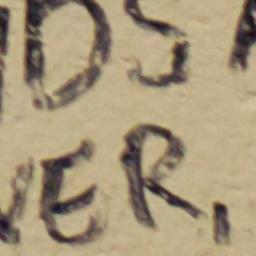 DS
VER.